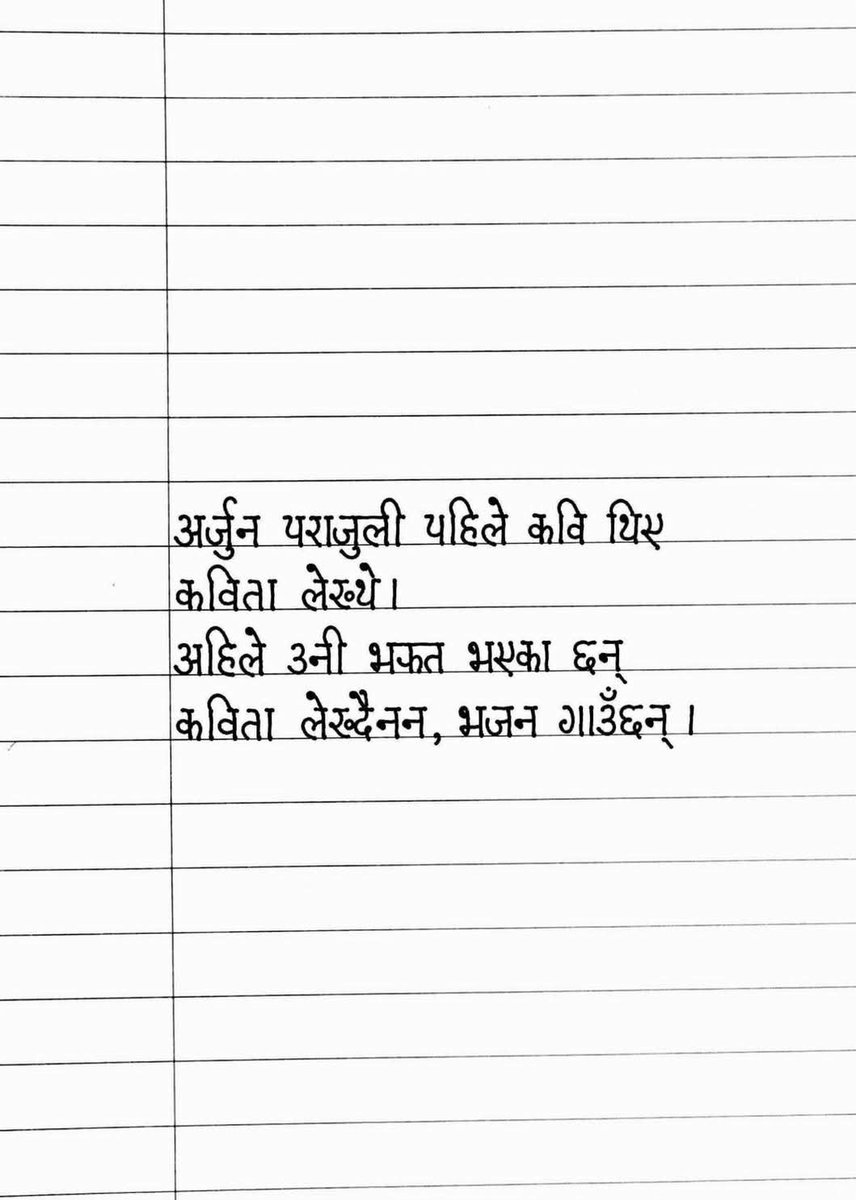 अर्जुन पराजुली पहिले कवि थिए
कविता लेख्थे।
अहिले उनी भक्त भएका छन्
कविता लेख्दैनन, भजन गाउँछन् ।